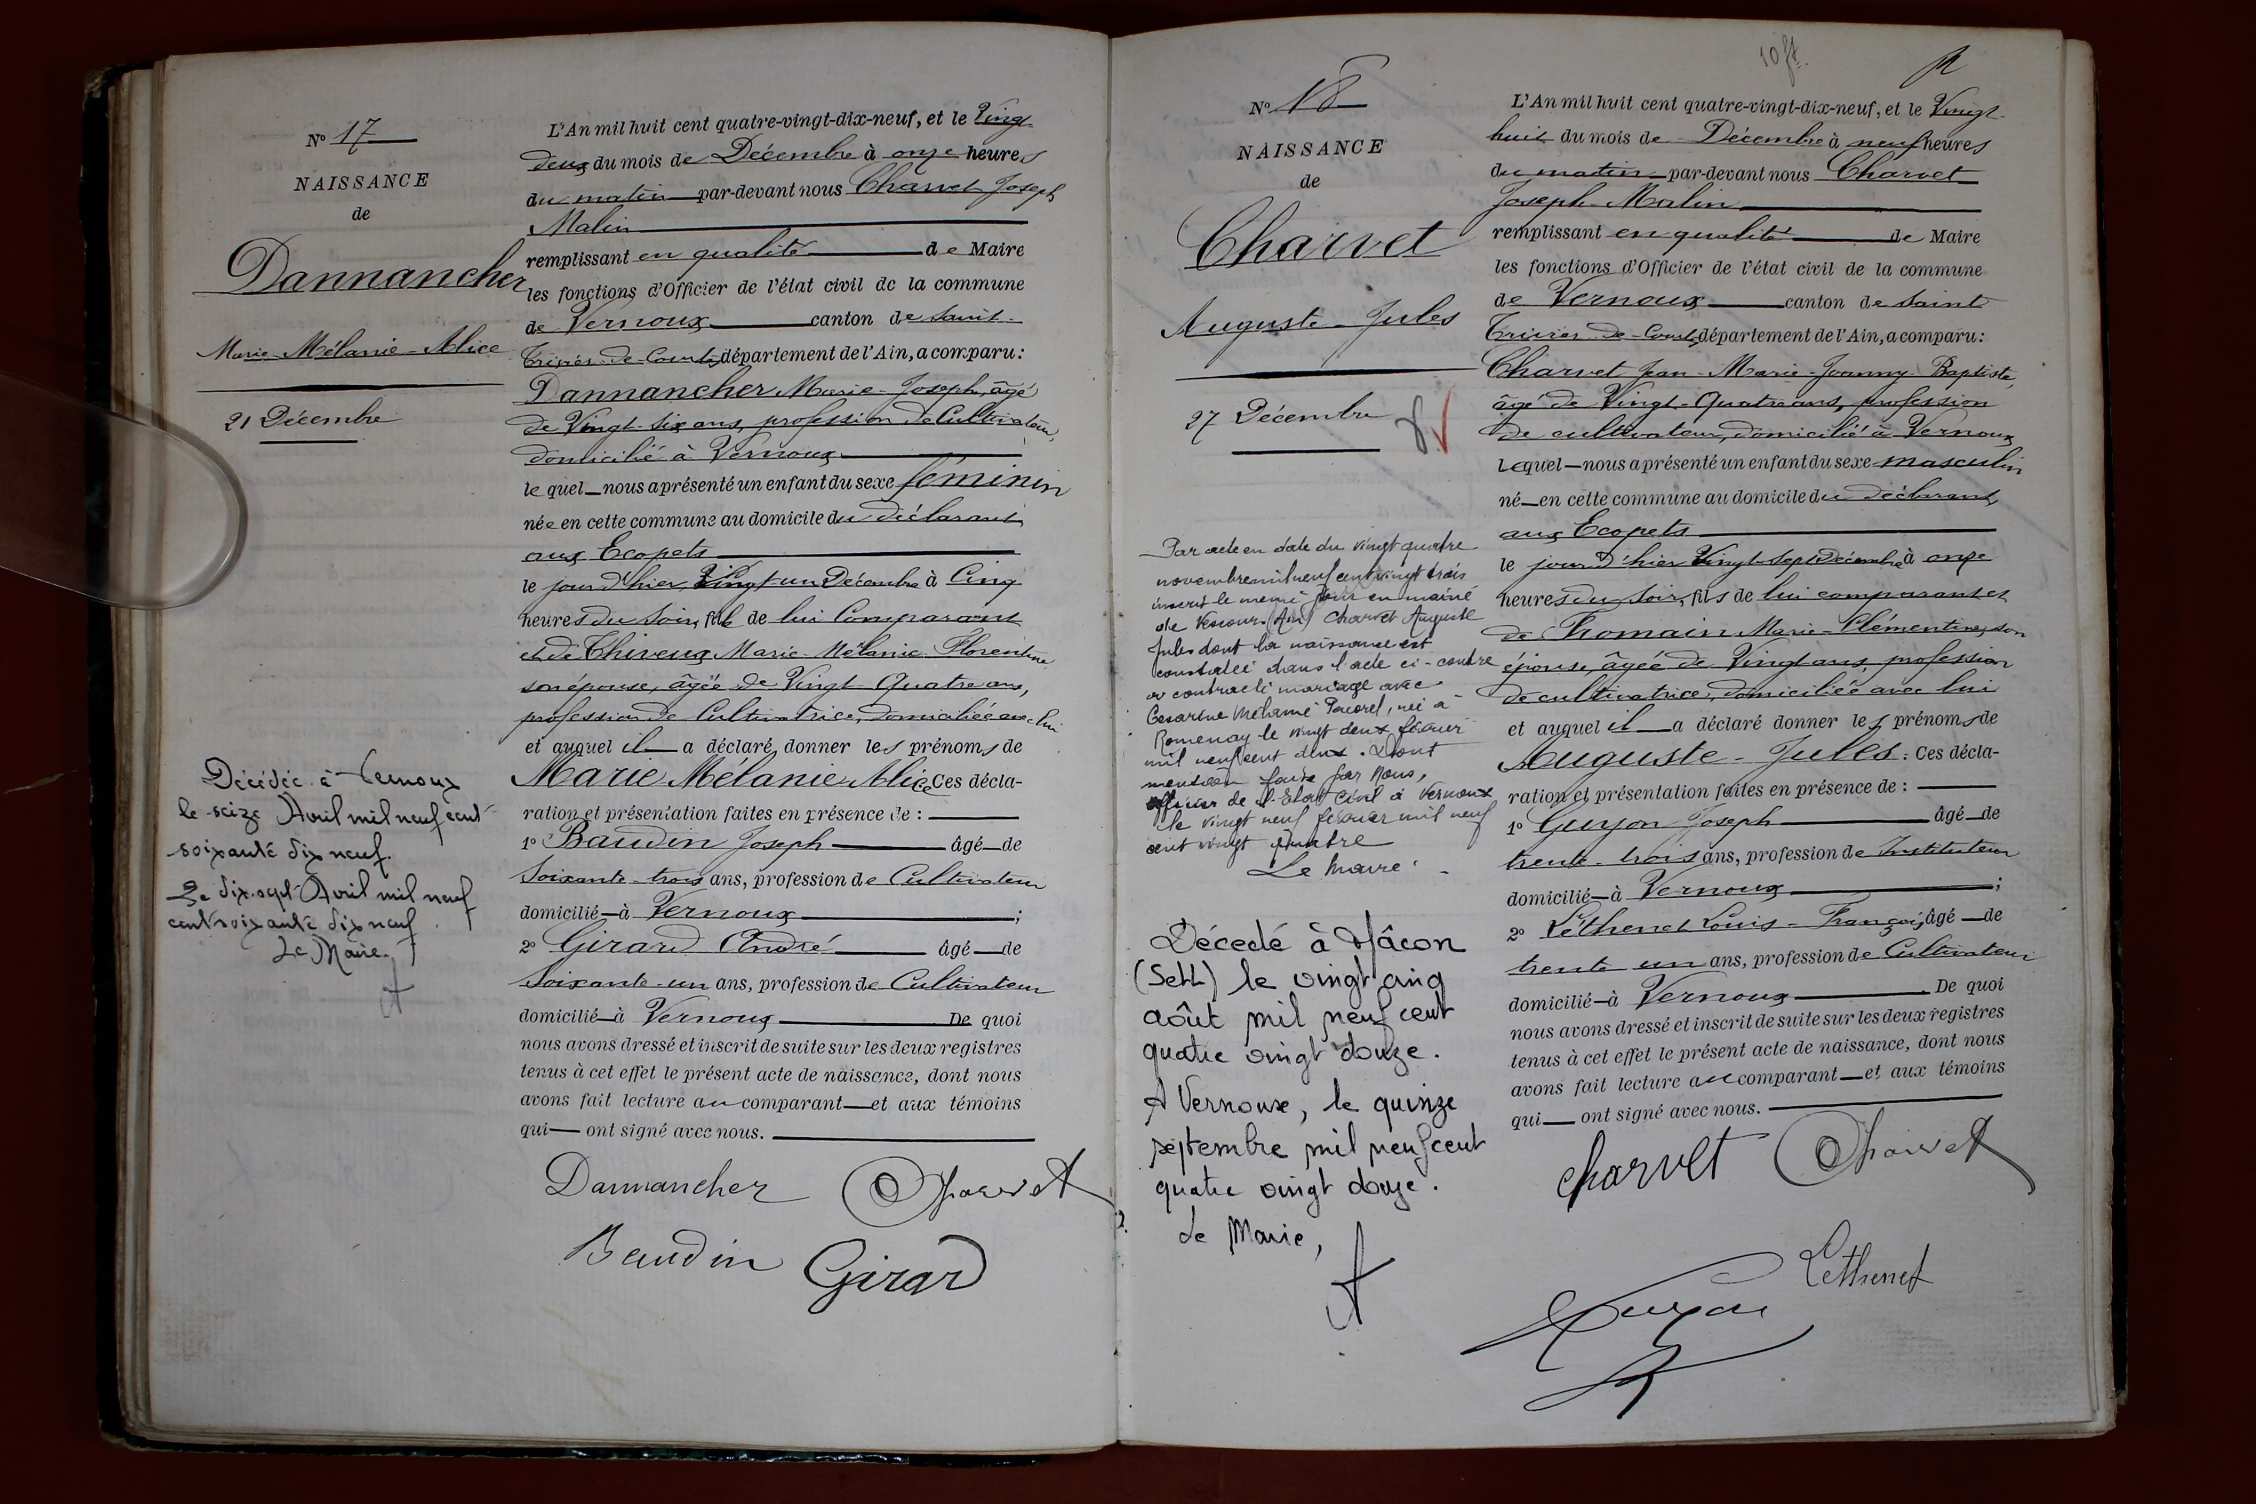 Nº 17
NAISSANCE
de
Dannancher
Marie-Mélanie-Alice
21 Décembre
Décédée à Vernoux
le seize Avril mil neuf cent
soixante dix neuf.
Le dix sept Avril mil neuf
cent soixante dix neuf.
Le Maire.
L'An mil huit cent quatre-vingt-dix-neuf, et le Vingt-
deux du mois de Décembre à onze heures
du matin par-devant nous Charvet Joseph
Malin
remplissant en qualité de Maire
les fonctions d'Officier de l'état civil de la commune
de Vernoux canton de Saint-
Trivier-de-Courtes, département de l'Ain, a comparu:
Dannancher Marie-Joseph, âgé
de Vingt-six ans, profession de Cultivateur,
domicilié à Vernoux
le quel nous a présenté un enfant du sexe féminin
née en cette commune au domicile du déclarant
aux Ecopets
le jour d'hier, Vingt-un Décembre à Cinq
heures du soir, fille de lui Comparant
et de Thiveux Marie-Mélanie-Florentine
son épouse, âgée de Vingt-Quatre ans,
profession de Cultivatrice, domiciliée avec lui
et auquel il a déclaré donner les prénoms de
Marie Mélanie Alice Ces décla-
ration et présentation faites en présence de :
1º Baudin Joseph âgé de
Soixante-trois ans, profession de Cultivateur
domicilié à Vernoux ;
2º Girard André âgé de
Soixante-un ans, profession de Cultivateur
domicilié à Vernoux De quoi
nous avons dressé et inscrit de suite sur les deux registres
tenus à cet effet le présent acte de naissance, dont nous
avons fait lecture au comparant et aux témoins
qui ont signé avec nous.
Dannancher Charvet
Baudin Girard
10 ft.
Nº 18
NAISSANCE
de
Charvet
Auguste-Jules
27 Décembre
Par acte en date du vingt quatre
novembre mil neuf cent vingt trois
inscrit le même jour en mairie
de Vernoux (Ain) Charvet Auguste
Jules dont la naissance est
constatée dans l'acte ci-contre
a contracté mariage avec
Cesarine Mélanie Pacorel, née à
Romenay le vingt deux février
mil neuf cent deux. Dont
mention faite par Nous,
officier de l'Etat Civil à Vernoux
le vingt neuf février mil neuf
cent vingt quatre
Le Maire
Décedé à Mâcon
(S et L) le vingt cinq
août mil neuf cent
quatre vingt douze.
A Vernoux, le quinze
septembre mil neuf cent
quatre vingt douze.
Le Maire,
L'An mil huit cent quatre-vingt-dix-neuf, et le Vingt-
huit du mois de Décembre à neuf heures
du matin par-devant nous Charvet
Joseph-Malin
remplissant en qualité de Maire
les fonctions d'Officier de l'état civil de la commune
de Vernoux canton de Saint
Trivier-de-Courtes, département de l'Ain, a comparu:
Charvet Jean-Marie-Joanny-Baptiste,
âgé de Vingt-Quatre ans, profession
de cultivateur, domicilié à Vernoux
Lequel nous a présenté un enfant du sexe masculin
né en cette commune au domicile du déclarant
aux Ecopets
le jour d'hier Vingt-sept Décembre à onze
heures du soir, fils de lui comparant et
de Thomain Marie-Clémentine, son
épouse, âgée de Vingt ans, profession
de cultivatrice, domiciliée avec lui
et auquel il a déclaré donner les prénoms de
Auguste-Jules : Ces décla-
ration et présentation faites en présence de :
1º Guyon Joseph âgé de
trente-trois ans, profession de Instituteur
domicilié à Vernoux ;
2º Léthenet Louis-François, âgé de
trente un ans, profession de Cultivateur
domicilié à Vernoux De quoi
nous avons dressé et inscrit de suite sur les deux registres
tenus à cet effet le présent acte de naissance, dont nous
avons fait lecture au comparant et aux témoins
qui ont signé avec nous.
charvet Charvet
Lethenet
Guyon